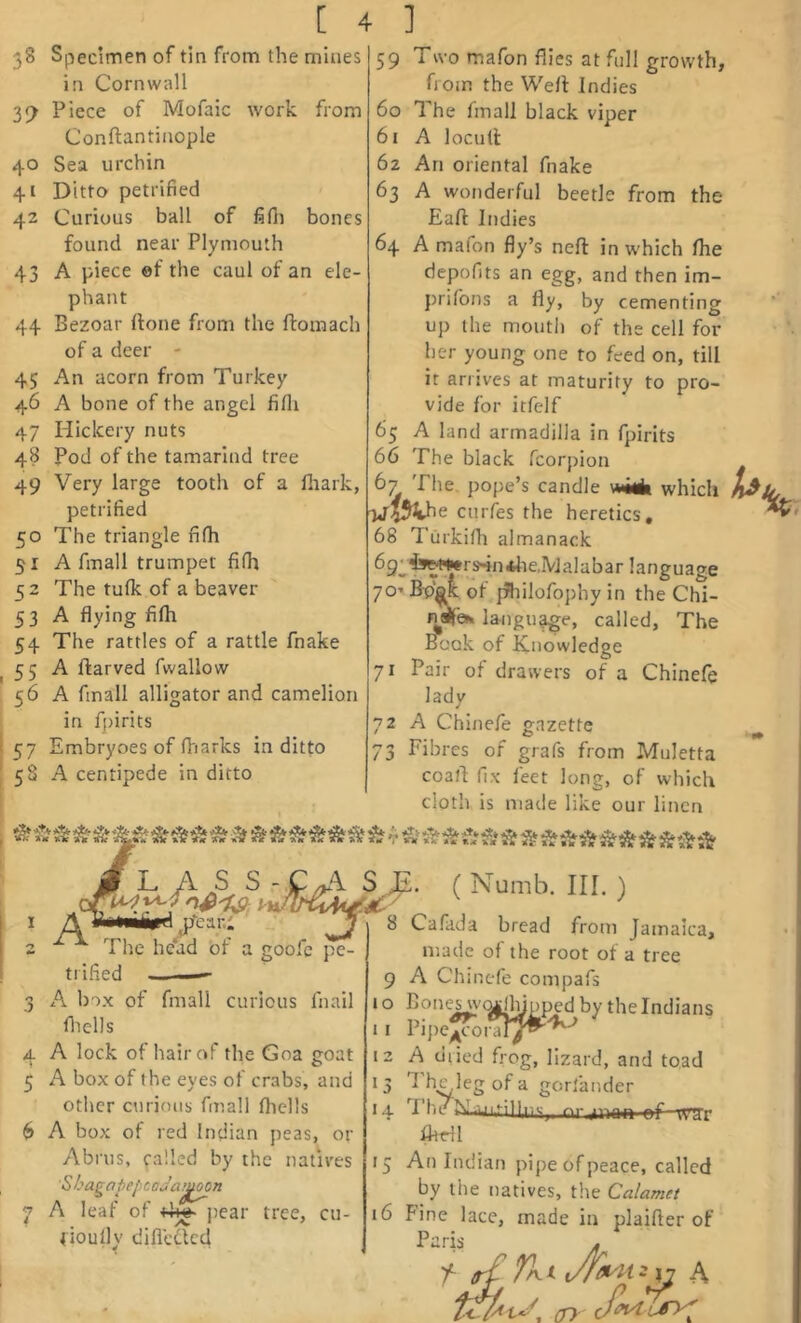 [ 4 ]
38 Specimen of tin from the mines
in Cornwall
39 Piece of Moſaic work from
Conſtantinople
40 Sea urchin
41 Ditto petrified
42 Curious ball of fiſh bones
found near Plymouth
43 A piece of the caul of an ele-
phant
44 Bezoar ſtone from the ſtomach
of a deer -
45 An acorn from Turkey
46 A bone of the angel fiſh
47 Hickery nuts
48 Pod of the tamarind tree
49 Very large tooth of a ſhark,
petrified
50 The triangle fiſh
51 A ſmall trumpet fiſh
52 The tuſk of a beaver
53 A flying fiſh
54 The rattles of a rattle ſnake
55 A ſtarved ſwallow
56 A ſmall alligator and camelion
in ſpirits
57 Embryoes of ſharks in ditto
58 A centipede in ditto
59 Two maſon flies at full growth,
from the Weſt Indies
60 The ſmall black viper
61 A locuſt
62 An oriental ſnake
63 A wonderful beetle from the
Eaſt Indies
64 A maſon fly's neſt in which ſhe
depoſits an egg, and then im-
priſons a fly, by cementing
up the mouth of the cell for
her young one to feed on, till
it arrives at maturity to pro-
vide for itſelf
65 A land armadilla in ſpirits
66 The black ſcorpion
67 The pope's candle with which
he curſes the heretics.
68 Turkiſh almanack
69 in the Malabar language
70 Book of philoſophy in the Chi-
neſe language, called, The
Book of Knowledge
71 Pair of drawers of a Chineſe
lady
72 A Chineſe gazette
73 Fibres of graſs from Muletta
coaſt ſix feet long, of which
cloth is made like our linen
GLASS-CASE. (Numb. III.)
1 A petrified pear.
2 The head of a gooſe pe-
trified
3 A box of ſmall curious ſnail
ſhells
4 A lock of hair of the Goa goat
5 A box of the eyes of crabs, and
other curious ſmall ſhells
6 A box of red Indian peas, or
Abrus, called by the natives
7 A leaf of the pear tree, cu-
riouſly diſſected
8 Caſada bread from Jamaica,
made of the root of a tree
9 A Chineſe compaſs
10 Bones worſhipped by the Indians
11 Pipe coral
12 A dried frog, lizard, and toad
13 The leg of a gorſander
14 The Nautillus, or man of war
ſhell
15 An Indian pipe of peace, called
by the natives, the Calamet
16 Fine lace, made in plaiſter of
Paris
17 A